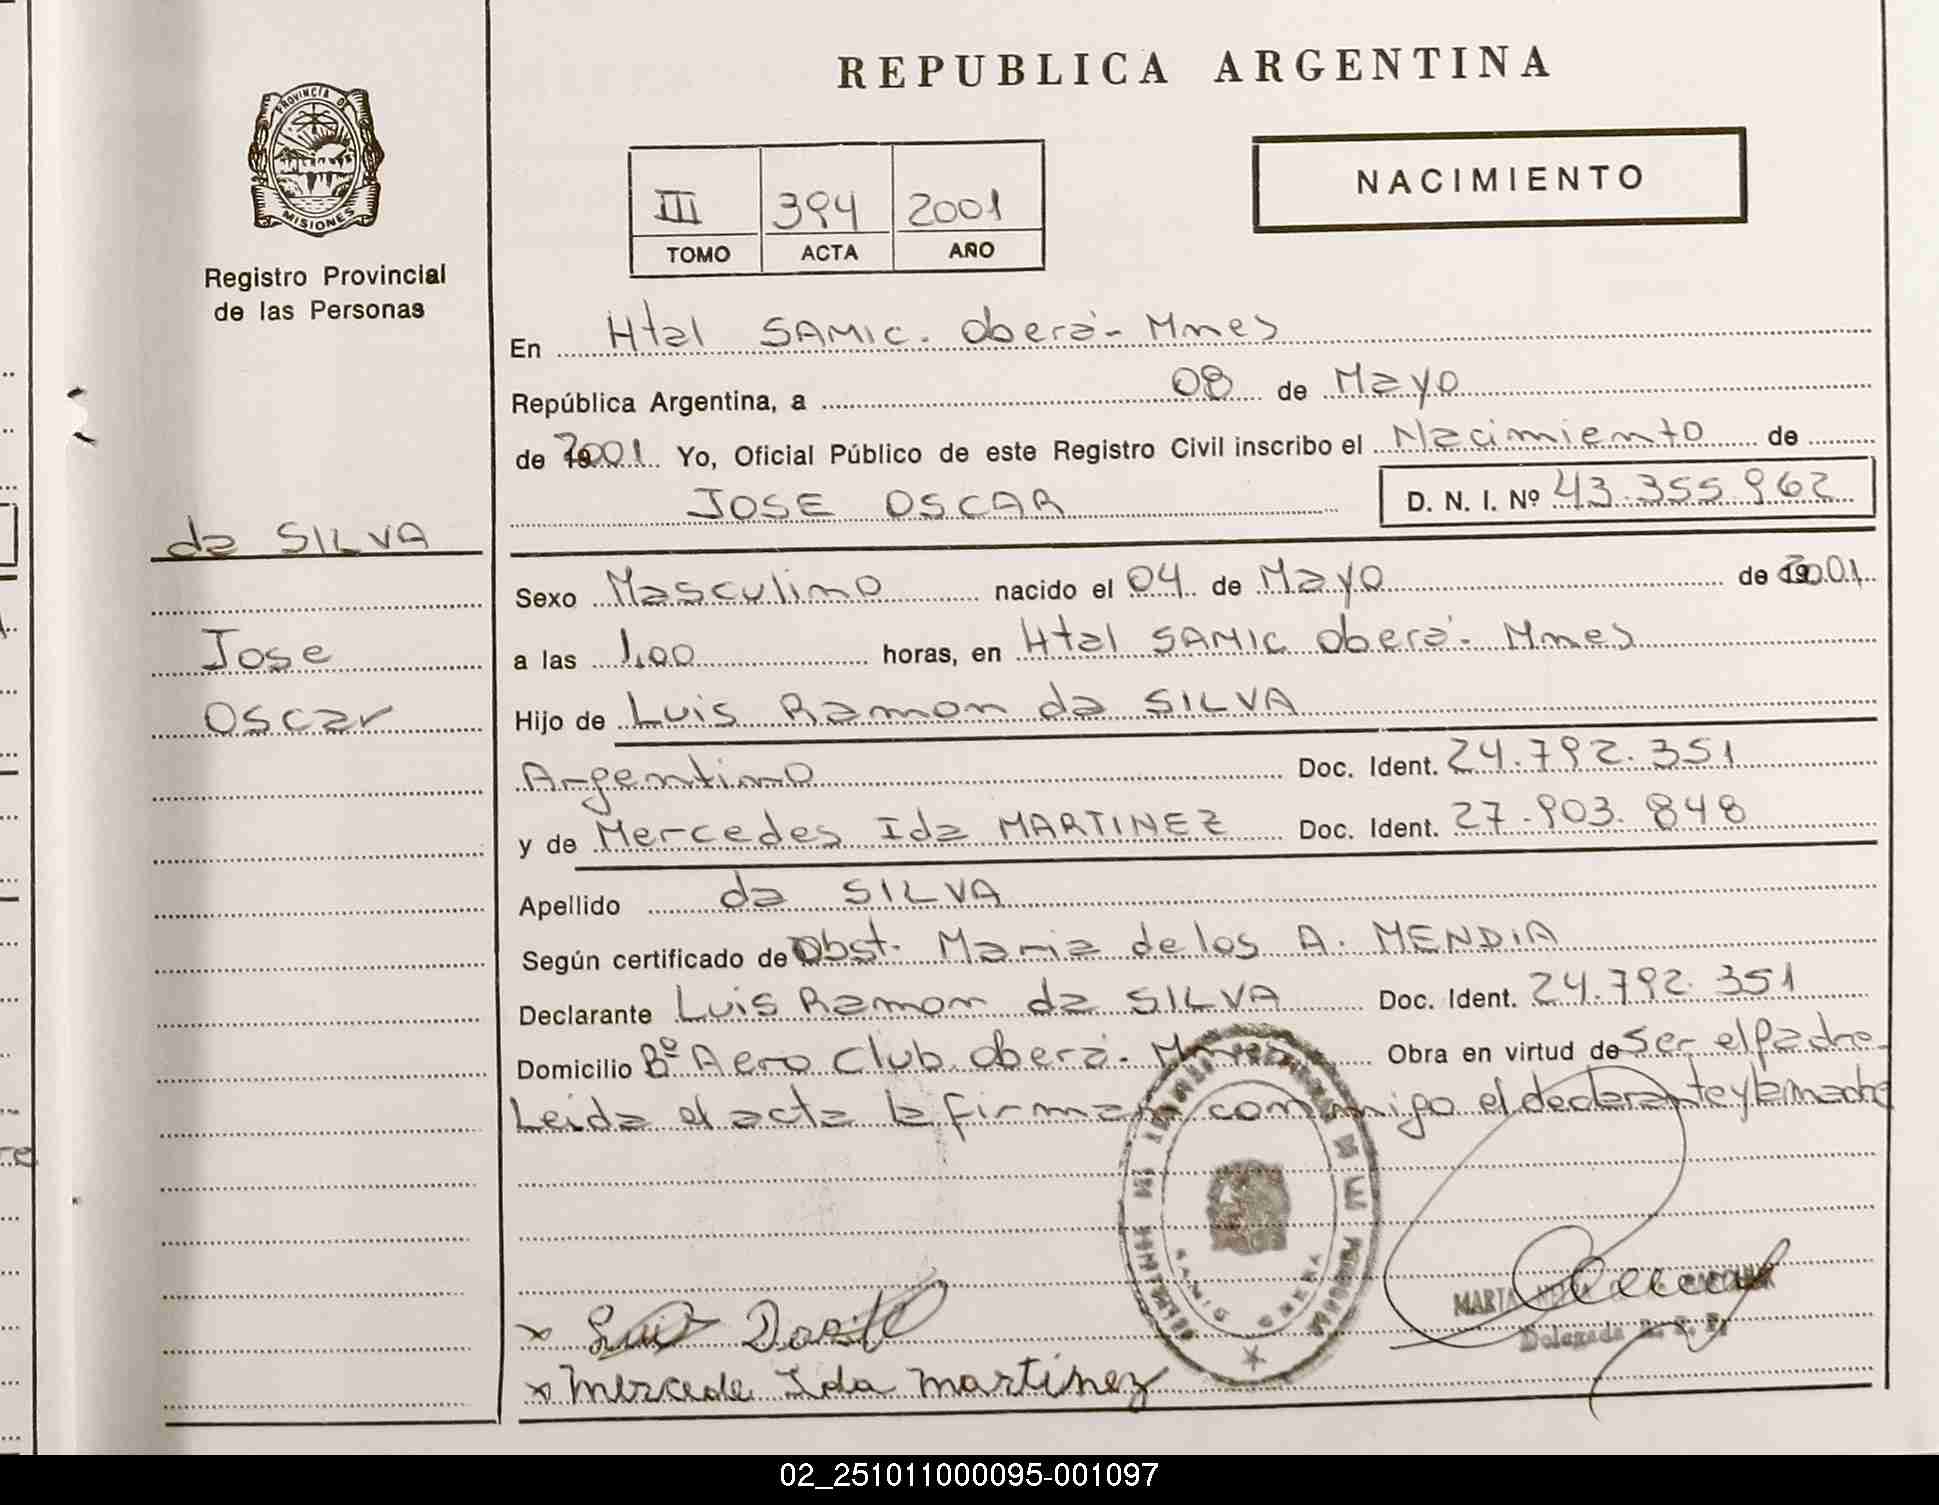 REPUBLICA ARGENTINA
PROVINCIA DE
MISIONES
Registro Provincial
de las Personas
III 394 2001
TOMO ACTA AÑO
NACIMIENTO
En Htal SAMIC. Oberá - Mnes
República Argentina, a 08 de Mayo
de 2001 Yo, Oficial Público de este Registro Civil inscribo el Nacimiento de
JOSE OSCAR D. N. I. Nº 43.355.962
da SILVA
Jose
Oscar
Sexo Masculino nacido el 04 de Mayo de 2001
a las 1.00 horas, en Htal SAMIC Oberá - Mnes
Hijo de Luis Ramon da SILVA
Argentino Doc. Ident. 24.792.351
y de Mercedes Ida MARTINEZ Doc. Ident. 27.903.848
Apellido da SILVA
Según certificado de Obst. Maria de los A. MENDIA
Declarante Luis Ramon da SILVA Doc. Ident. 24.792.351
Domicilio Bº Aero Club. Oberá - Mnes Obra en virtud de ser el padre.
Leida el acta la firman conmigo el declarante y la madre
x Luis
x Mercede Ida Martinez
MARTA
Delegada R. P. P.
02_251011000095-001097